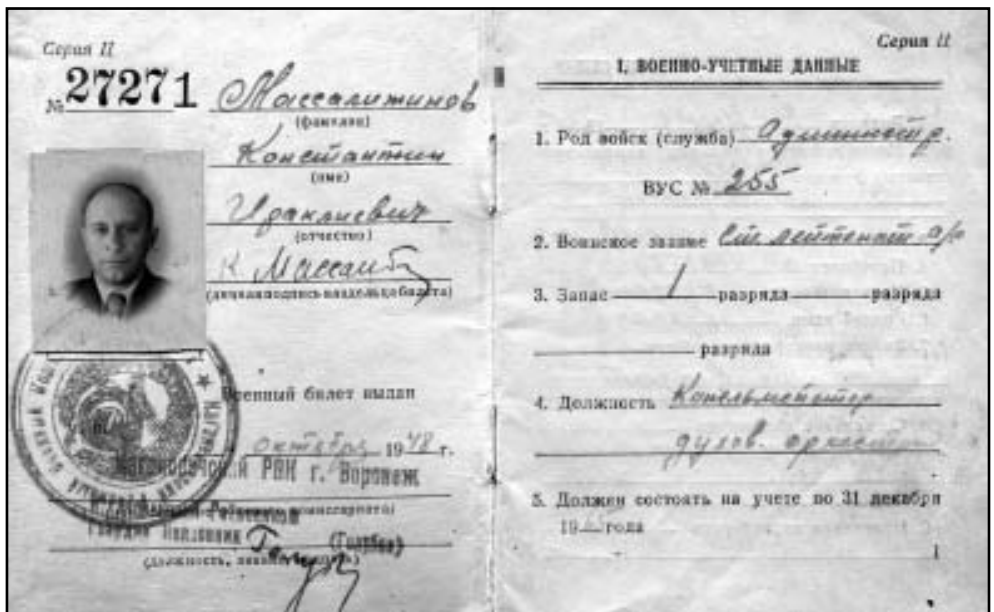 Серия II
№ 27271 Массалитинов
(фамилия)
Константин
(имя)
Ираклиевич
(отчество)
К Массалит
(личная подпись владельца билета)
Военный билет выдан
октября 1948 г.
РВК г. Воронеж
комиссариата)
Гвардии Полковник (Голубев)
(должность,
Серия II
I. ВОЕННО-УЧЕТНЫЕ ДАННЫЕ
1. Род войск (служба) Админист р.
ВУС № 255
2. Воинское звание Ст. лейтенант а/с
3. Запас 1 разряда разряда
разряда
4. Должность Капельмейстер
духов. оркестра
5. Должен состоять на учете по 31 декабря
19 года
1